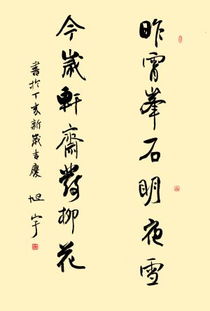 昨霄峯石明夜雪
今歲軒齋發柳花
書於丁亥新歲吉慶 旭宇